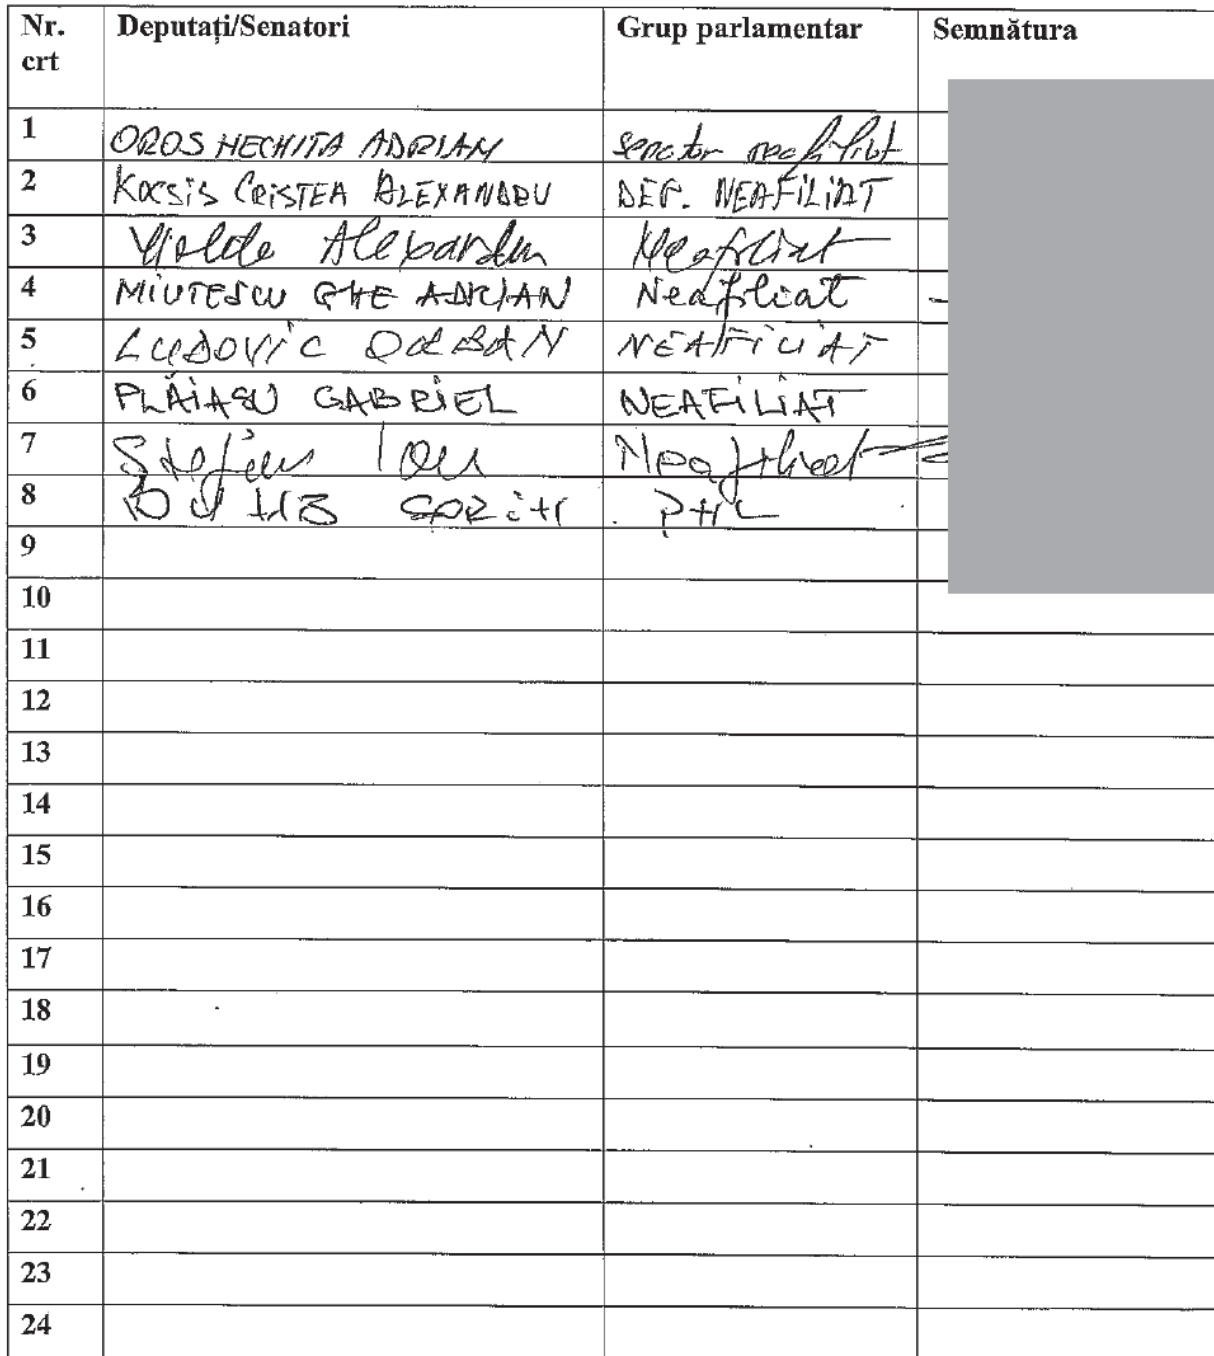 Nr. crt Deputați/Senatori Grup parlamentar Semnătura
1 OROS NECHITA ADRIAN senator neafiliat
2 KOCSIS CRISTEA ALEXANDRU DEP. NEAFILIAT
3 Alexandru Neafiliat
4 MIUTESCU GHE ADRIAN Neafiliat
5 LUDOVIC ORBAN NEAFILIAT
6 PLĂIAȘU GABRIEL NEAFILIAT
7 Ștefan Ion Neafiliat
8 SORIN PNL
9
10
11
12
13
14
15
16
17
18
19
20
21
22
23
24